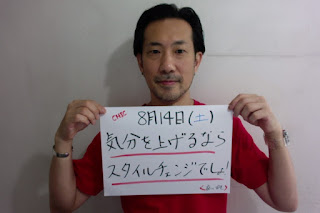 CHIC
8月14日(土)
気分を上げるなら
スタイルチェンジでしょ!